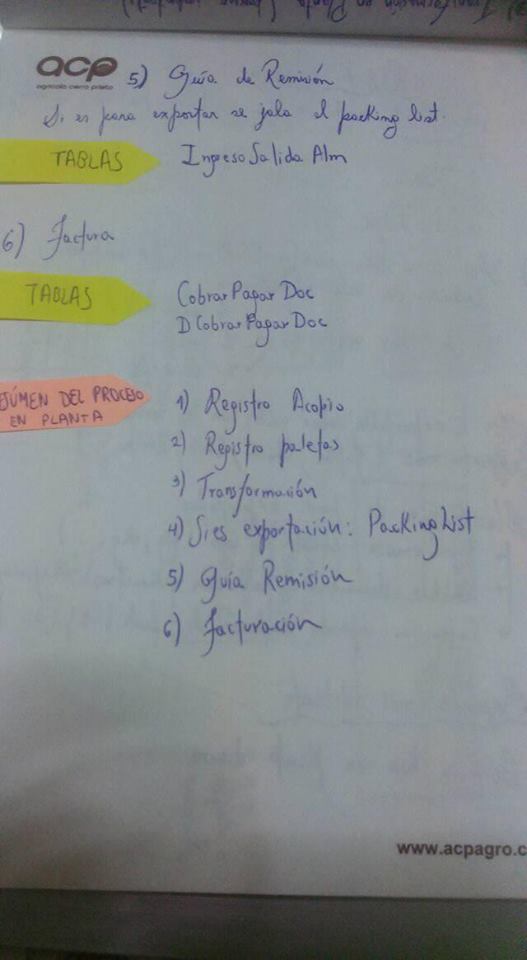 acp
agrícola cerro prieto
5) Guía de Remisión
Si es para exportar se jala el packing list.
TABLAS
IngresoSalida Alm
6) Factura
TABLAS
CobrarPagarDoc
DCobrarPagarDoc
RESÚMEN DEL PROCESO
EN PLANTA
1) Registro Acopio
2) Registro paletas
3) Transformación
4) Si es exportación: PackingList
5) Guía Remisión
6) Facturación
www.acpagro.c